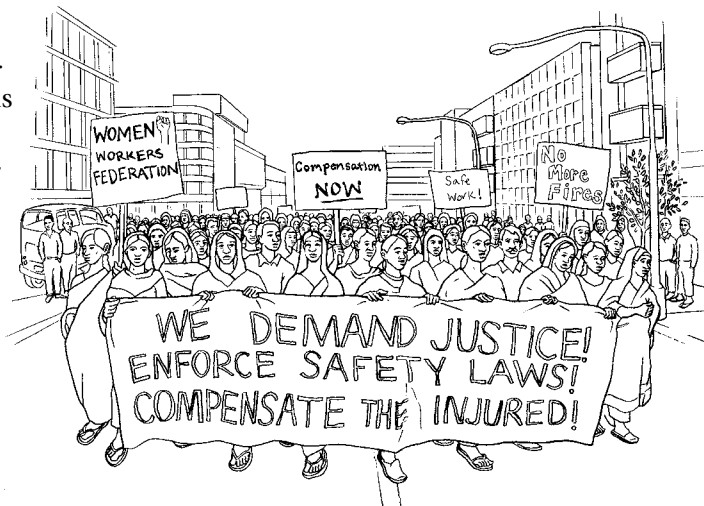 WOMEN
WORKERS
FEDERATION
Compensation
NOW
Safe
Work!
No
More
Fires
WE DEMAND JUSTICE!
ENFORCE SAFETY LAWS!
COMPENSATE THE INJURED!